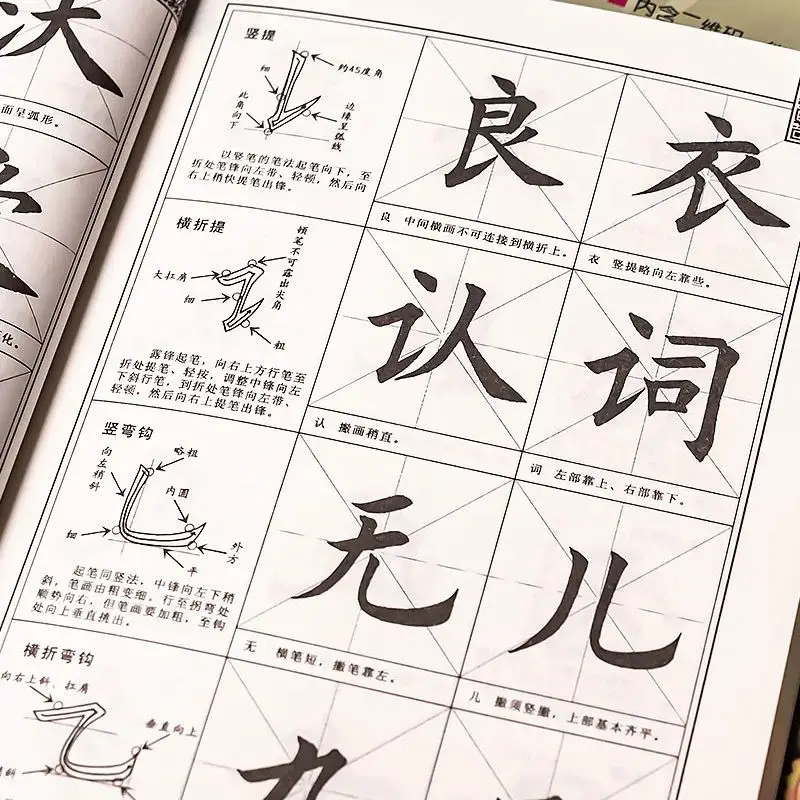 内含二维码
面呈弧形。
化。
竖提
约45度角
细
此角向下
边缘呈弧线
以竖笔的笔法起笔向下，至
折处笔锋向左带、轻顿，然后向
右上稍快提笔出锋。
良
良 中间横画不可连接到横折上。
衣
衣 竖提略向左靠些。
横折提
顿笔不可露出尖角
大扛肩
细
粗
露锋起笔，向右上方行笔至
折处提笔、轻按，调整中锋向左
下斜行笔，到折处笔锋向左带、
轻顿，然后向右上提笔出锋。
认
认 撇画稍直。
词
词 左部靠上、右部靠下。
竖弯钩
略粗
向左稍斜
内圆
细
外方
平
起笔同竖法，中锋向左下稍
斜，笔画由粗变细，行至拐弯处
顺势向右，但笔画要加粗，至钩
处向上垂直挑出。
无
无 横笔短，撇笔靠左。
儿
儿 撇须竖撇，上部基本齐平。
横折弯钩
向右上斜、扛肩
垂直向上
稍斜
九